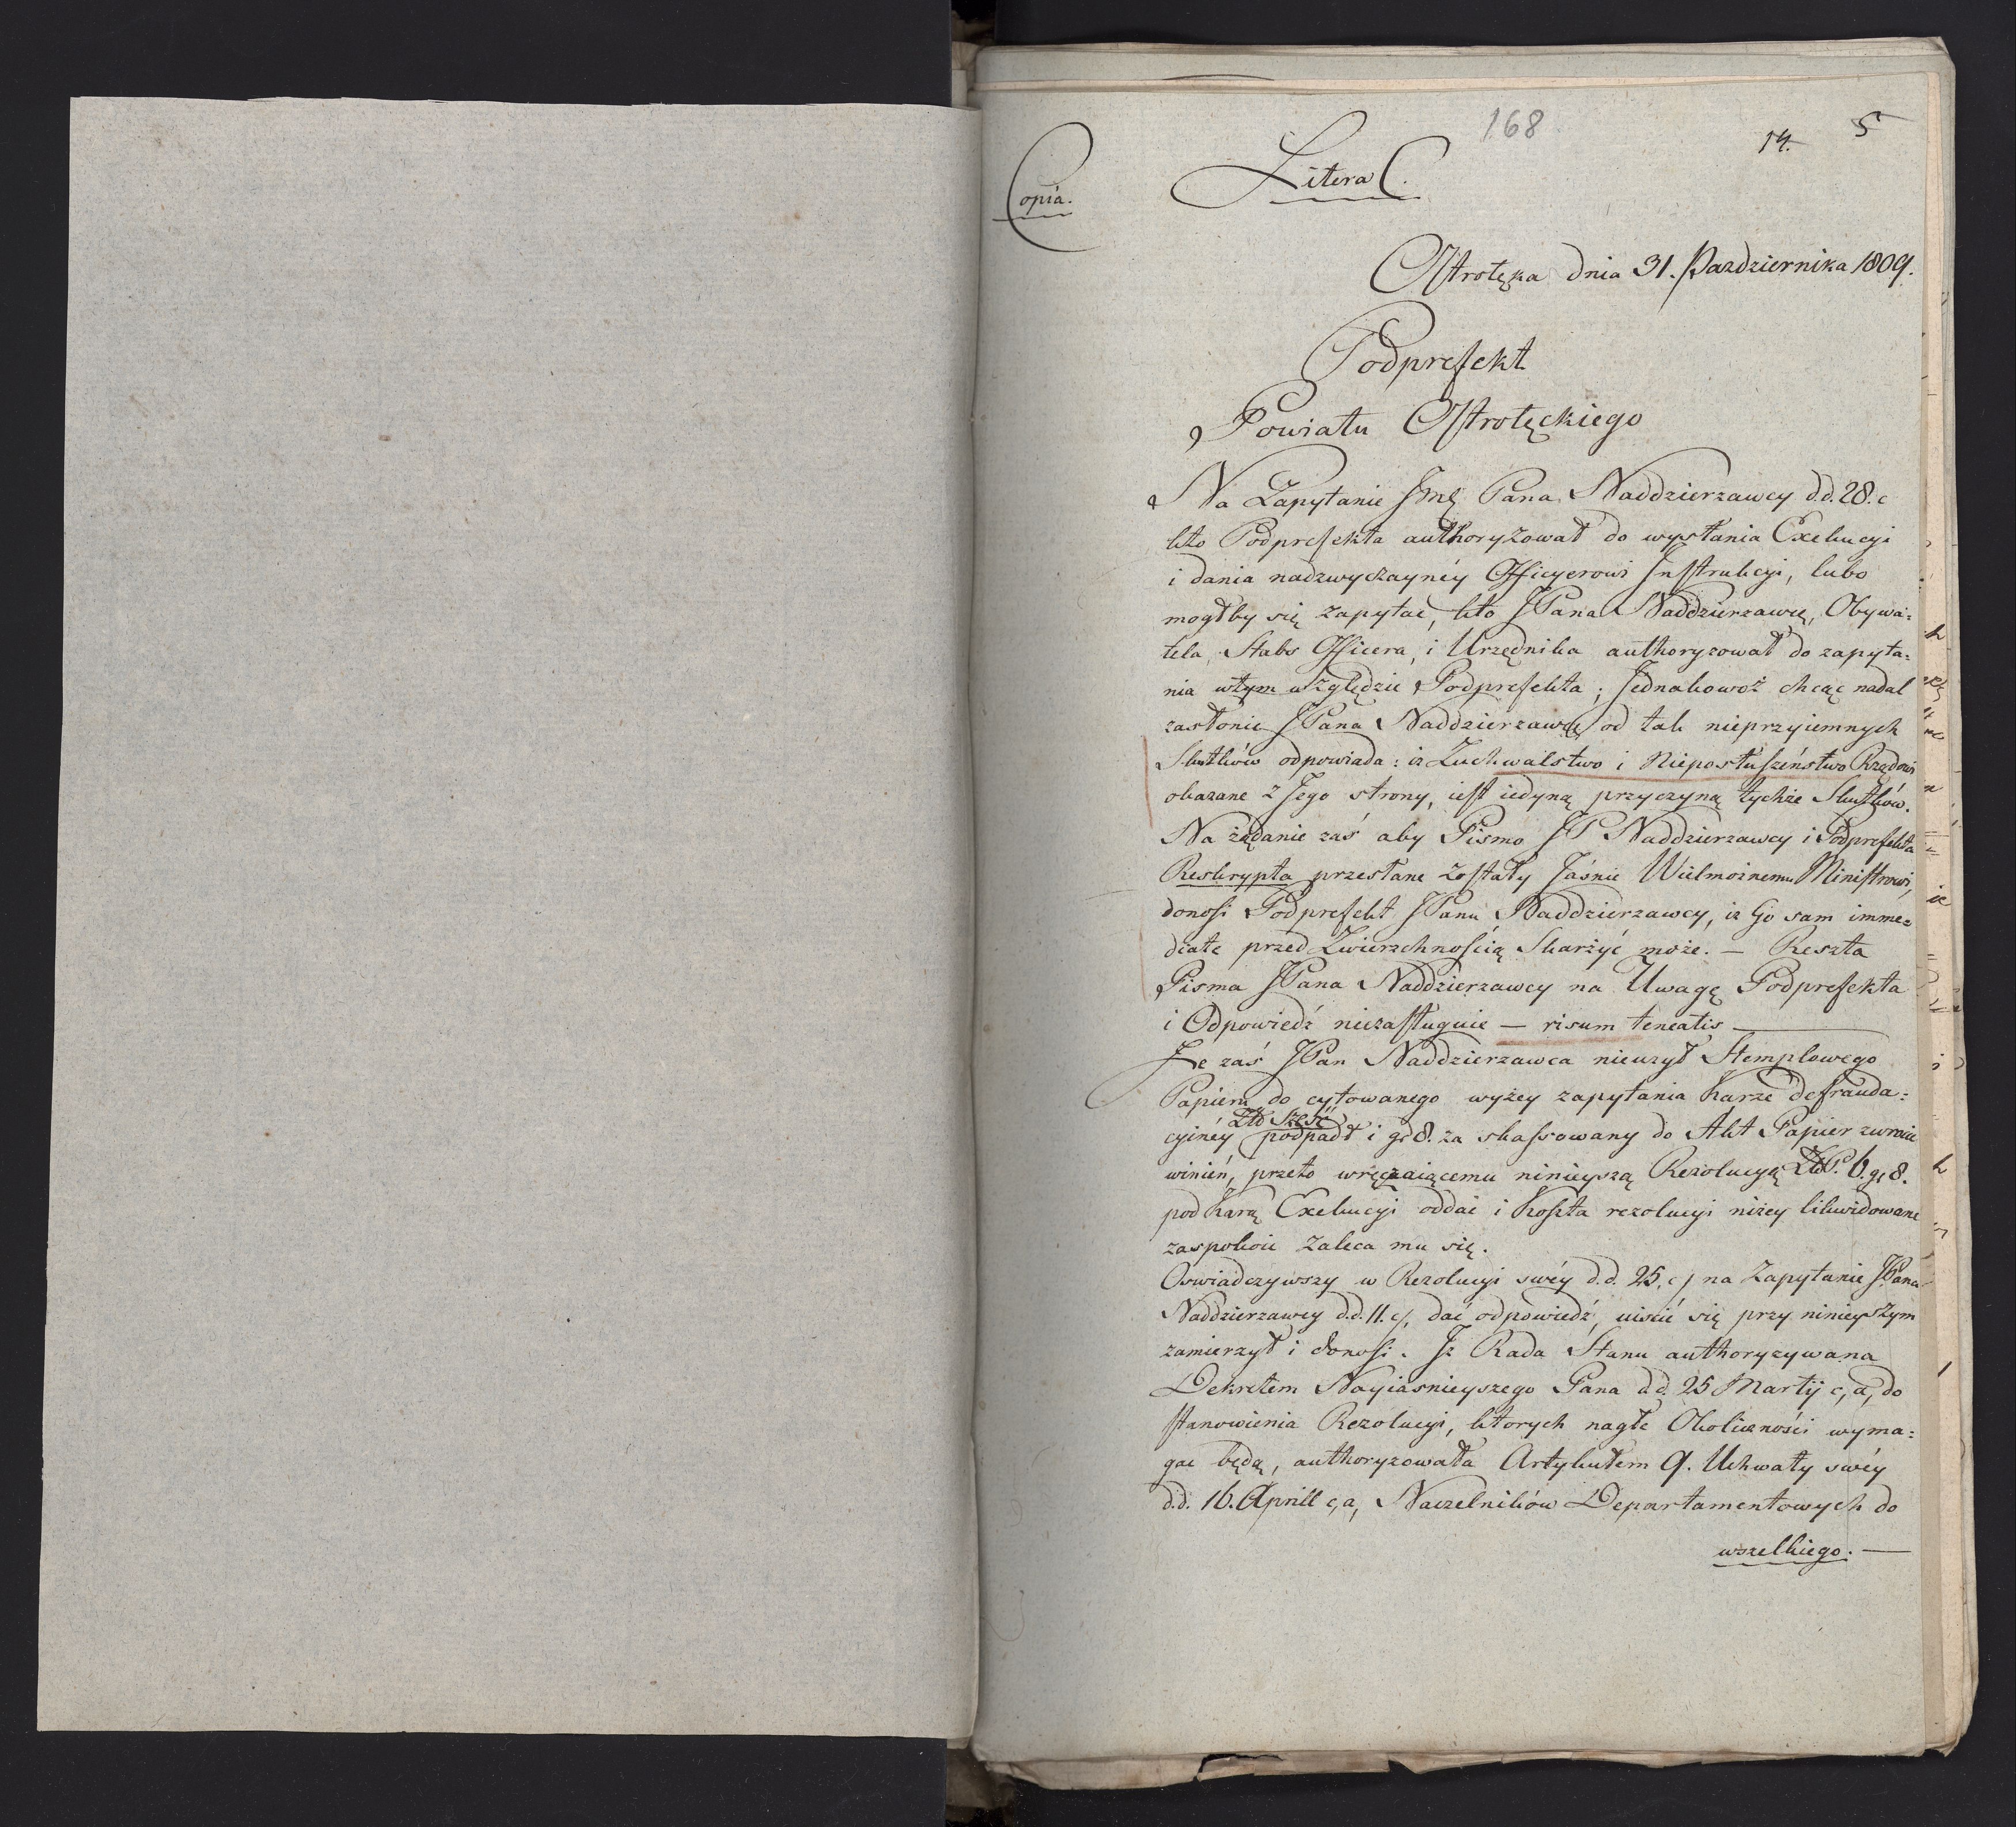 168
14. 5
Copia.
Litera C.
Ostrołęka dnia 31. Pazdziernika 1809.
Podprefekt
Powiatu Ostrołęckiego
Na Zapytanie Jmę Pana Naddzierzawcy d.d. 28. c
kto Podprefekta authoryzował do wysłania Exekucyi
i dania nadzwyczaynéy Officyerowi Instrukcyi, lubo
mogłby się zapytać, kto JPana Naddzierzawcę, Obywa:
tela, Stabs Officera, i Urzędnika authoryzował do zapyta:
nia wtym względzie Podprefekta; Jednakowoż chcąc nadal
zasłonić JPana Naddzierzawcę od tak nieprzyiemnych
Skutków odpowiada: iż Zuchwalstwo i Nieposłuszeństwo Rządowi
okazane z Jego strony, iest iedyną przyczyną tychże Skutków.
Na żądanie zaś aby Pismo JP Naddzierzawcy i Podprefekta
Reskrypta przesłane zostały Jaśnie Wielmożnemu Ministrowi,
donosi Podprefekt JPanu Naddzierzawcy, iż Go sam imme:
diate przed Zwierzchnością Skarżyć może. — Reszta
Pisma JPana Naddzierzawcy na Uwagę Podprefekta
i Odpowiedź niezasługuie — risum teneatis —
Że zaś JPan Naddzierzawca nieużył Stemplowego
Papieru do cytowanego wyżey zapytania Karze defrauda:
Złt Sześć
cyinéy podpadł i gr 8. za skassowany do Akt Papier zwrócić
winień, przeto wręczaiącemu ninieyszą Rezolucyą ZłP. 6. gr 8.
pod Karą Exekucyi oddać i Koszta rezolucyi niżey likwidowane
zaspokoić zaleca mu się.
Oswiadczywszy w Rezolucyi swéy d.d. 25. c/ na Zapytanie JPana
Naddzierzawcy d.d. 11. c/, dać odpowiedź, uiścić się przy ninieyszym
zamierzył i donosi. Iż Rada Stanu authoryzywana
Dekretem Nayiasnieyszego Pana d.d. 25 Martij c, a, do
stanowienia Rezolucyi, ktorych nagłe Okoliczności wyma:
gać będą, authoryzowała Artykułem 9. Uchwały swéy
d.d. 16. Aprill c, a, Naczelników Departamentowych do
wszelkiego. —